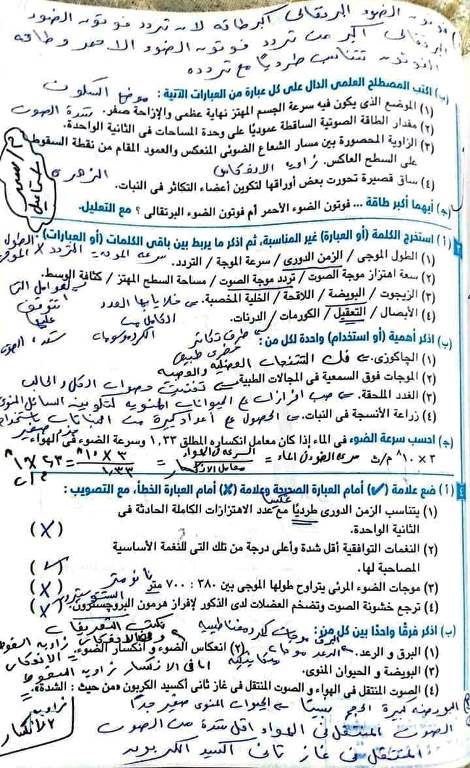 فوتون الضوء البرتقالى أكبر طاقة لأن تردد فوتون الضوء
البرتقالى أكبر من تردد فوتون الضوء الأحمر وطاقة
الفوتون تتناسب طرديا مع تردده
(ب) اكتب المصطلح العلمى الدال على كل عبارة من العبارات الآتية :
(١) الموضع الذى يكون فيه سرعة الجسم المهتز نهاية عظمى والإزاحة صفر. موضع السكون
(٢) مقدار الطاقة الصوتية الساقطة عموديًا على وحدة المساحات فى الثانية الواحدة. شدة الصوت
(٣) الزاوية المحصورة بين مسار الشعاع الضوئى المنعكس والعمود المقام من نقطة السقوط
على السطح العاكس. زاوية الانعكاس
(٤) ساق قصيرة تحورت بعض أوراقها لتكوين أعضاء التكاثر فى النبات. الزهرة
(ج) أيهما أكبر طاقة ... فوتون الضوء الأحمر أم فوتون الضوء البرتقالى ؟ مع التعليل.
(أ) استخرج الكلمة (أو العبارة) غير المناسبة، ثم اذكر ما يربط بين باقى الكلمات (أو العبارات) :
(١) الطول الموجى / الزمن الدورى / سرعة الموجة / التردد. سرعة الموجة = التردد × الطول الموجى
(٢) سعة اهتزاز موجة الصوت / تردد موجة الصوت / مساحة السطح المهتز / كثافة الوسط. العوامل التى تتوقف عليها شدة الصوت
(٣) الزيجوت / البويضة / اللاقحة / الخلية المخصبة. خلايا بها العدد الكامل من الكروموسومات
(٤) الأبصال / التعقيل / الكورمات / الدرنات. طرق تكاثر خضرى طبيعى
(ب) اذكر أهمية (أو استخدام) واحدة لكل من :
(١) الچاكوزى. فك التشنجات العضلية والعصبية
(٢) الموجات فوق السمعية فى المجالات الطبية. تفتيت حصوات الكلى والحالب
(٣) الغدد الملحقة. صب إفرازات على الحيوانات المنوية لتكوين السائل المنوى
(٤) زراعة الأنسجة فى النبات. الحصول على أعداد كبيرة من النباتات باستخدام جزء صغير
(ج) احسب سرعة الضوء فى الماء إذا كان معامل انكساره المطلق ١,٣٣ وسرعة الضوء فى الهواء
٣ × ١٠٨ م/ث سرعة الضوء فى الماء = السرعة فى الهواء / معامل الانكسار = ٣ × ١٠٨ / ١,٣٣
(أ) ضع علامة (✓) أمام العبارة الصحيحة وعلامة (✗) أمام العبارة الخطأ، مع التصويب :
(١) يتناسب الزمن الدورى طرديًا مع عدد الاهتزازات الكاملة الحادثة فى عكسيا
الثانية الواحدة. (✗)
(٢) النغمات التوافقية أقل شدة وأعلى درجة من تلك التى للنغمة الأساسية
المصاحبة لها. (✓)
(٣) موجات الضوء المرئى يتراوح طولها الموجى بين ٣٨٠ : ٧٠٠ متر نانومتر (✗)
(٤) ترجع خشونة الصوت وتضخم العضلات لدى الذكور لإفراز هرمون البروچسترون. التستوستيرون (✗)
(ب) اذكر فرقًا واحدًا بين كل من : تكتب التعريفات
(١) البرق و الرعد. البرق موجات كهرومغناطيسية الرعد موجات ميكانيكية
(٢) انعكاس الضوء و انكسار الضوء. فى الانعكاس زاوية السقوط = زاوية الانعكاس أما فى الانكسار زاوية السقوط ≠ زاوية الانكسار
(٣) البويضة و الحيوان المنوى.
(٤) الصوت المنتقل فى الهواء و الصوت المنتقل فى غاز ثانى أكسيد الكربون «من حيث : الشدة».
البويضة كبيرة الحجم نسبيًا - الحيوان المنوى صغير جدا
الصوت المنتقل فى الهواء أقل شدة من الصوت
المنتقل فى غاز ثانى أكسيد الكربون